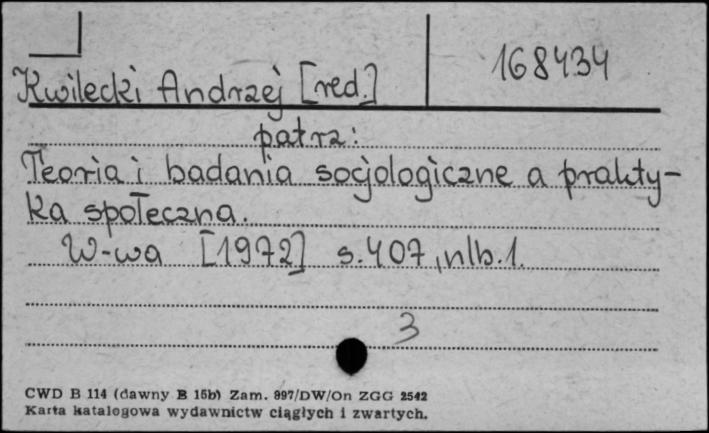 168434
Kwilecki Andrzej [red.]
patrz:
Teoria i badania socjologiczne a prakty-
ka społeczna.
W-wa [1972] s. 407, nlb. 1.
3
CWD B 114 (dawny B 15b) Zam. 997/DW/On ZGG 2542
Karta katalogowa wydawnictw ciągłych i zwartych.